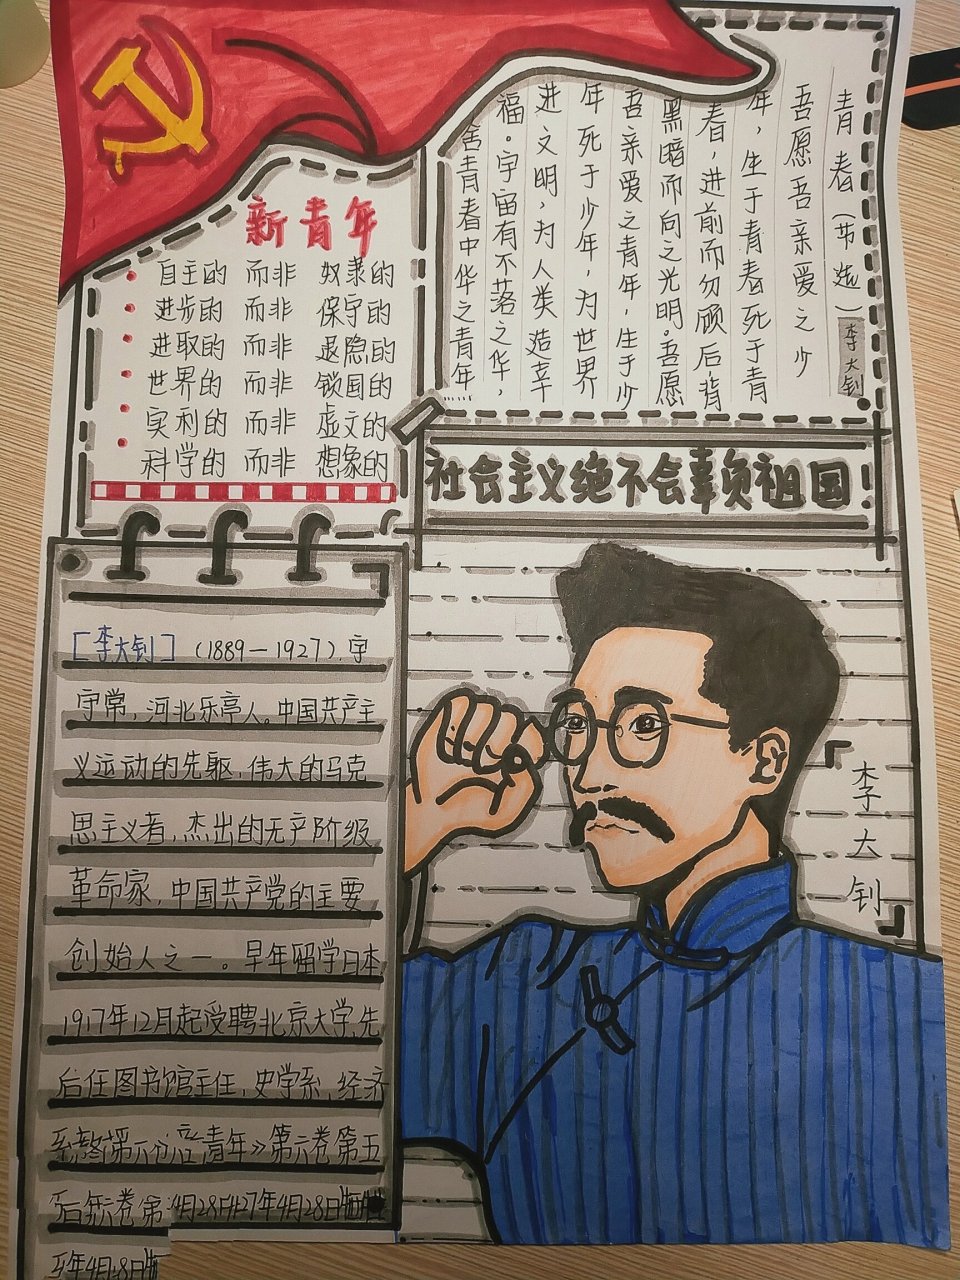 新青年
自主的 而非 奴隶的
进步的 而非 保守的
进取的 而非 退隐的
世界的 而非 锁国的
实利的 而非 虚文的
科学的 而非 想象的
青春(节选)李大钊
吾愿吾亲爱之少
年,生于青春死于青
春,进前而勿顾后,背
黑暗而向之光明。吾愿
吾亲爱之青年,生于少
年死于少年,为世界
进文明,为人类造幸
福。宇宙有不落之华,
舍青春中华之青年……
社会主义绝不会辜负祖国!
[李大钊](1889—1927),字
守常,河北乐亭人。中国共产主
义运动的先驱,伟大的马克
思主义者,杰出的无产阶级
革命家,中国共产党的主要
创始人之一。早年留学日本
1917年12月起受聘北京大学,先
后任图书馆主任,史学系,经济
青年》第六卷第五
4月28日 27年4月28日
年4月
李大钊